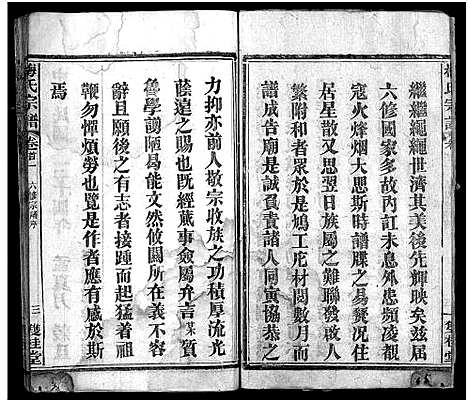 繼繼繩繩世濟其美後先輝映矣茲屆
六修國家多故內訌未息外患頻凌覩
寇火烽烟大思斯時譜牒之易燬况住
居星散又思日族屬之難聯爰取斯
繁附和者眾於是鳩工庀材閱數月而
告厥成誠負責諸人同寅協恭之
力抑亦前人敬宗收族之功積厚流光
蔭遠之賜也既經蕆事僉屬弁言某質
魯學謭陋曷能文然攸關所在義不容
辭且願後之有志者接踵而起打破
鞭勿憚煩勞也覽是作者應有感於斯
焉
梅氏宗譜
卷首
六修宗譜序
三
雙桂堂